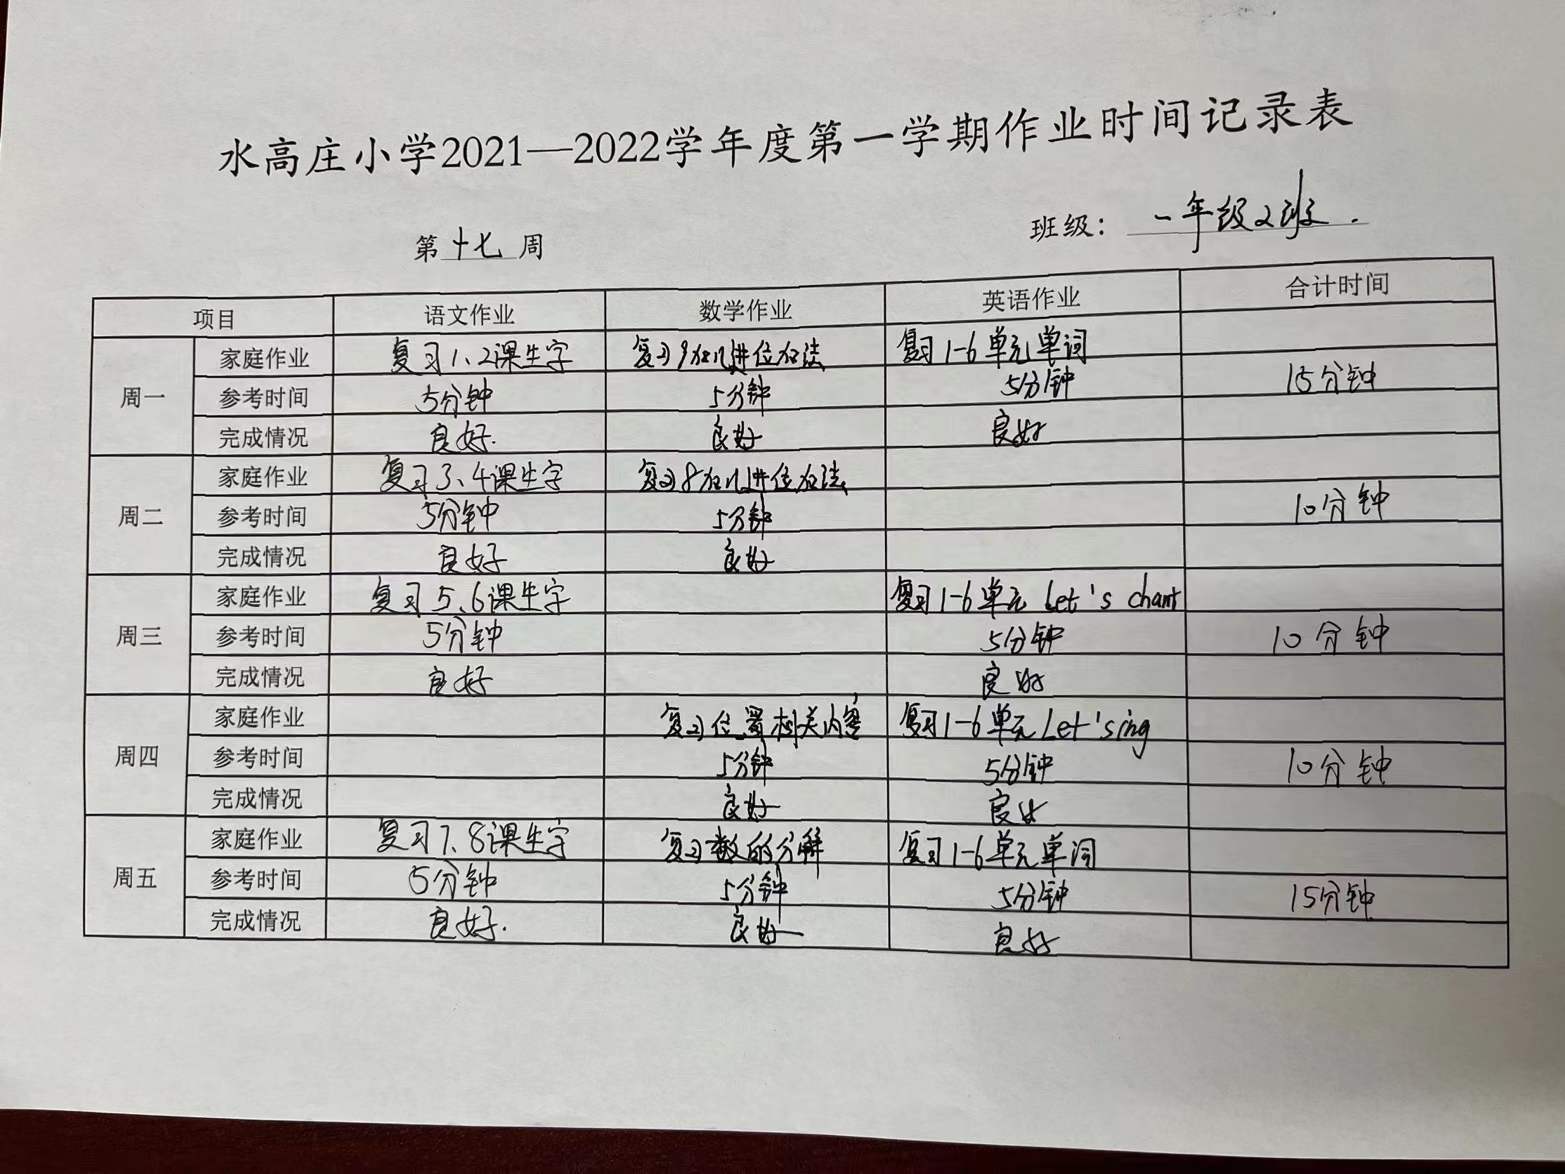 水高庄小学2021—2022学年度第一学期作业时间记录表
第十七周 班级：一年级2班.
项目 语文作业 数学作业 英语作业 合计时间
周一 家庭作业 复习1、2课生字 复习9加几进位加法 复习1-6单元单词
参考时间 5分钟 5分钟 5分钟 15分钟
完成情况 良好. 良好 良好
周二 家庭作业 复习3、4课生字 复习8加几进位加法
参考时间 5分钟 5分钟 10分钟
完成情况 良好 良好
周三 家庭作业 复习5、6课生字 复习1-6单元 Let's chant
参考时间 5分钟 5分钟 10分钟
完成情况 良好 良好
周四 家庭作业 复习位置相关内容 复习1-6单元Let'sing
参考时间 5分钟 5分钟 10分钟
完成情况 良好 良好
周五 家庭作业 复习7、8课生字 复习数的分解 复习1-6单元单词
参考时间 5分钟 5分钟 5分钟 15分钟
完成情况 良好. 良好 良好